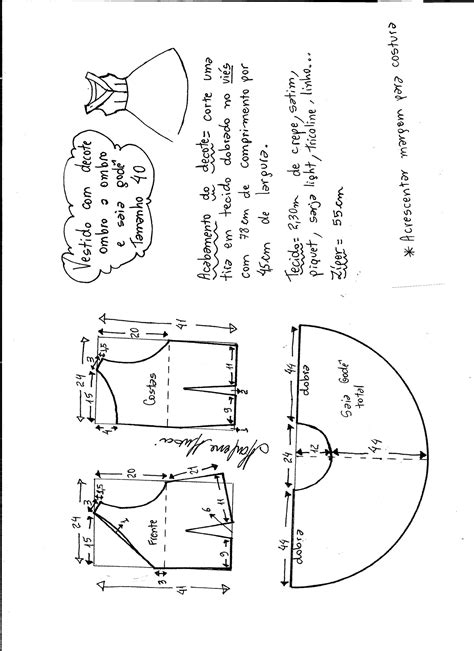 Vestido com decote
ombro a ombro
e saia godê
Tamanho 40
Acabamento do decote= corte uma
tira em tecido dobrado no viés
com 78cm de comprimento por
45cm de largura.
Tecido= 2,30m de crepe, satim,
piquet, sarja light, tricoline, linho...
Zíper= 55cm
* Acrescentar margem para costura
24
15
3
1,5
20
41
4
Costas
9
11
1
2
Marlene Mukai
24
15
3
1,5
20
21
Frente
3
9
6
11
41
44
24
44
dobra
dobra
12
Saia Godê
total
44